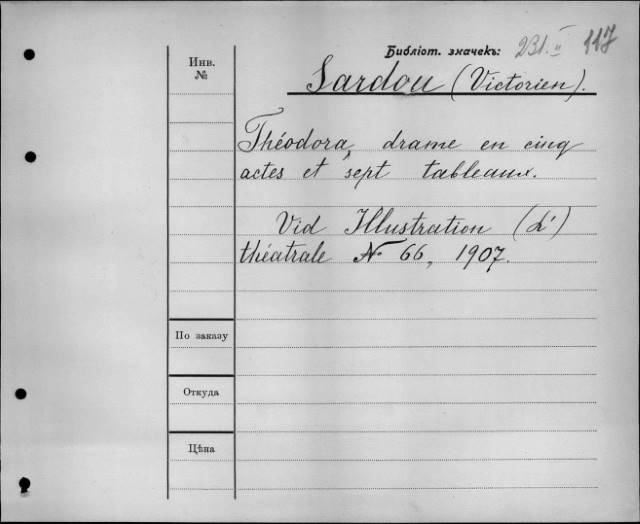 Библіот. значекъ: 231.II 117
Инв.
№
Sardou (Victorien).
Théodora, drame en cinq
actes et sept tableaux.
Vid Illustration (L')
théatrale № 66, 1907.
По заказу
Откуда
Цѣна